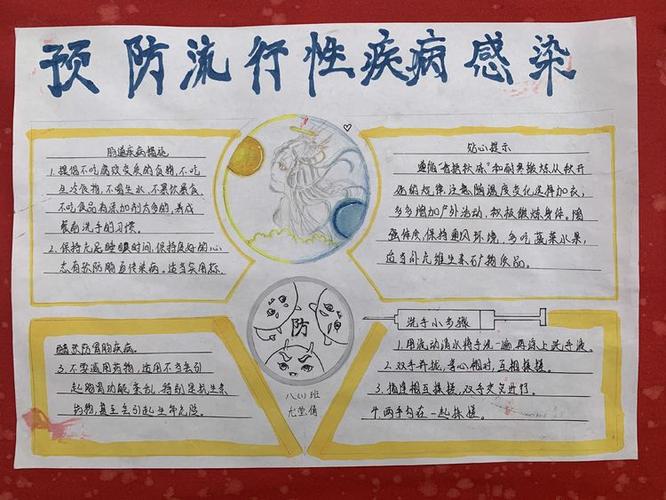 预防流行性疾病感染
肠道疾病措施
1.提倡不吃腐败变质的食物,不吃
生冷食物,不喝生水,不暴饮暴食
不吃食品有添加剂太多的,养成
餐前洗手的习惯。
2.保持充足睡眠时间,保持良好的心
态有效防肠道传染病。适当采用
醋预防胃肠疾病。
3.不要滥用药物,滥用不当会引
起肠胃功能紊乱,特别是抗生素
药物,甚至会引起生命危险。
贴心提示
遵循“春捂秋冻”和耐寒锻炼从秋开
始的规律,注意随温度变化选择加衣,
多多增加户外活动,积极锻炼身体。增
强体质,保持通风环境,多吃蔬菜水果,
适当补充维生素矿物质品。
防
八(1)班
洗手小步骤
1.用流动清水将手洗一遍再涂上洗手液。
2.双手并拢,掌心相对,互相揉搓。
3.指缝相互揉搓,双手交叉进行。
4.两手勾在一起揉搓。